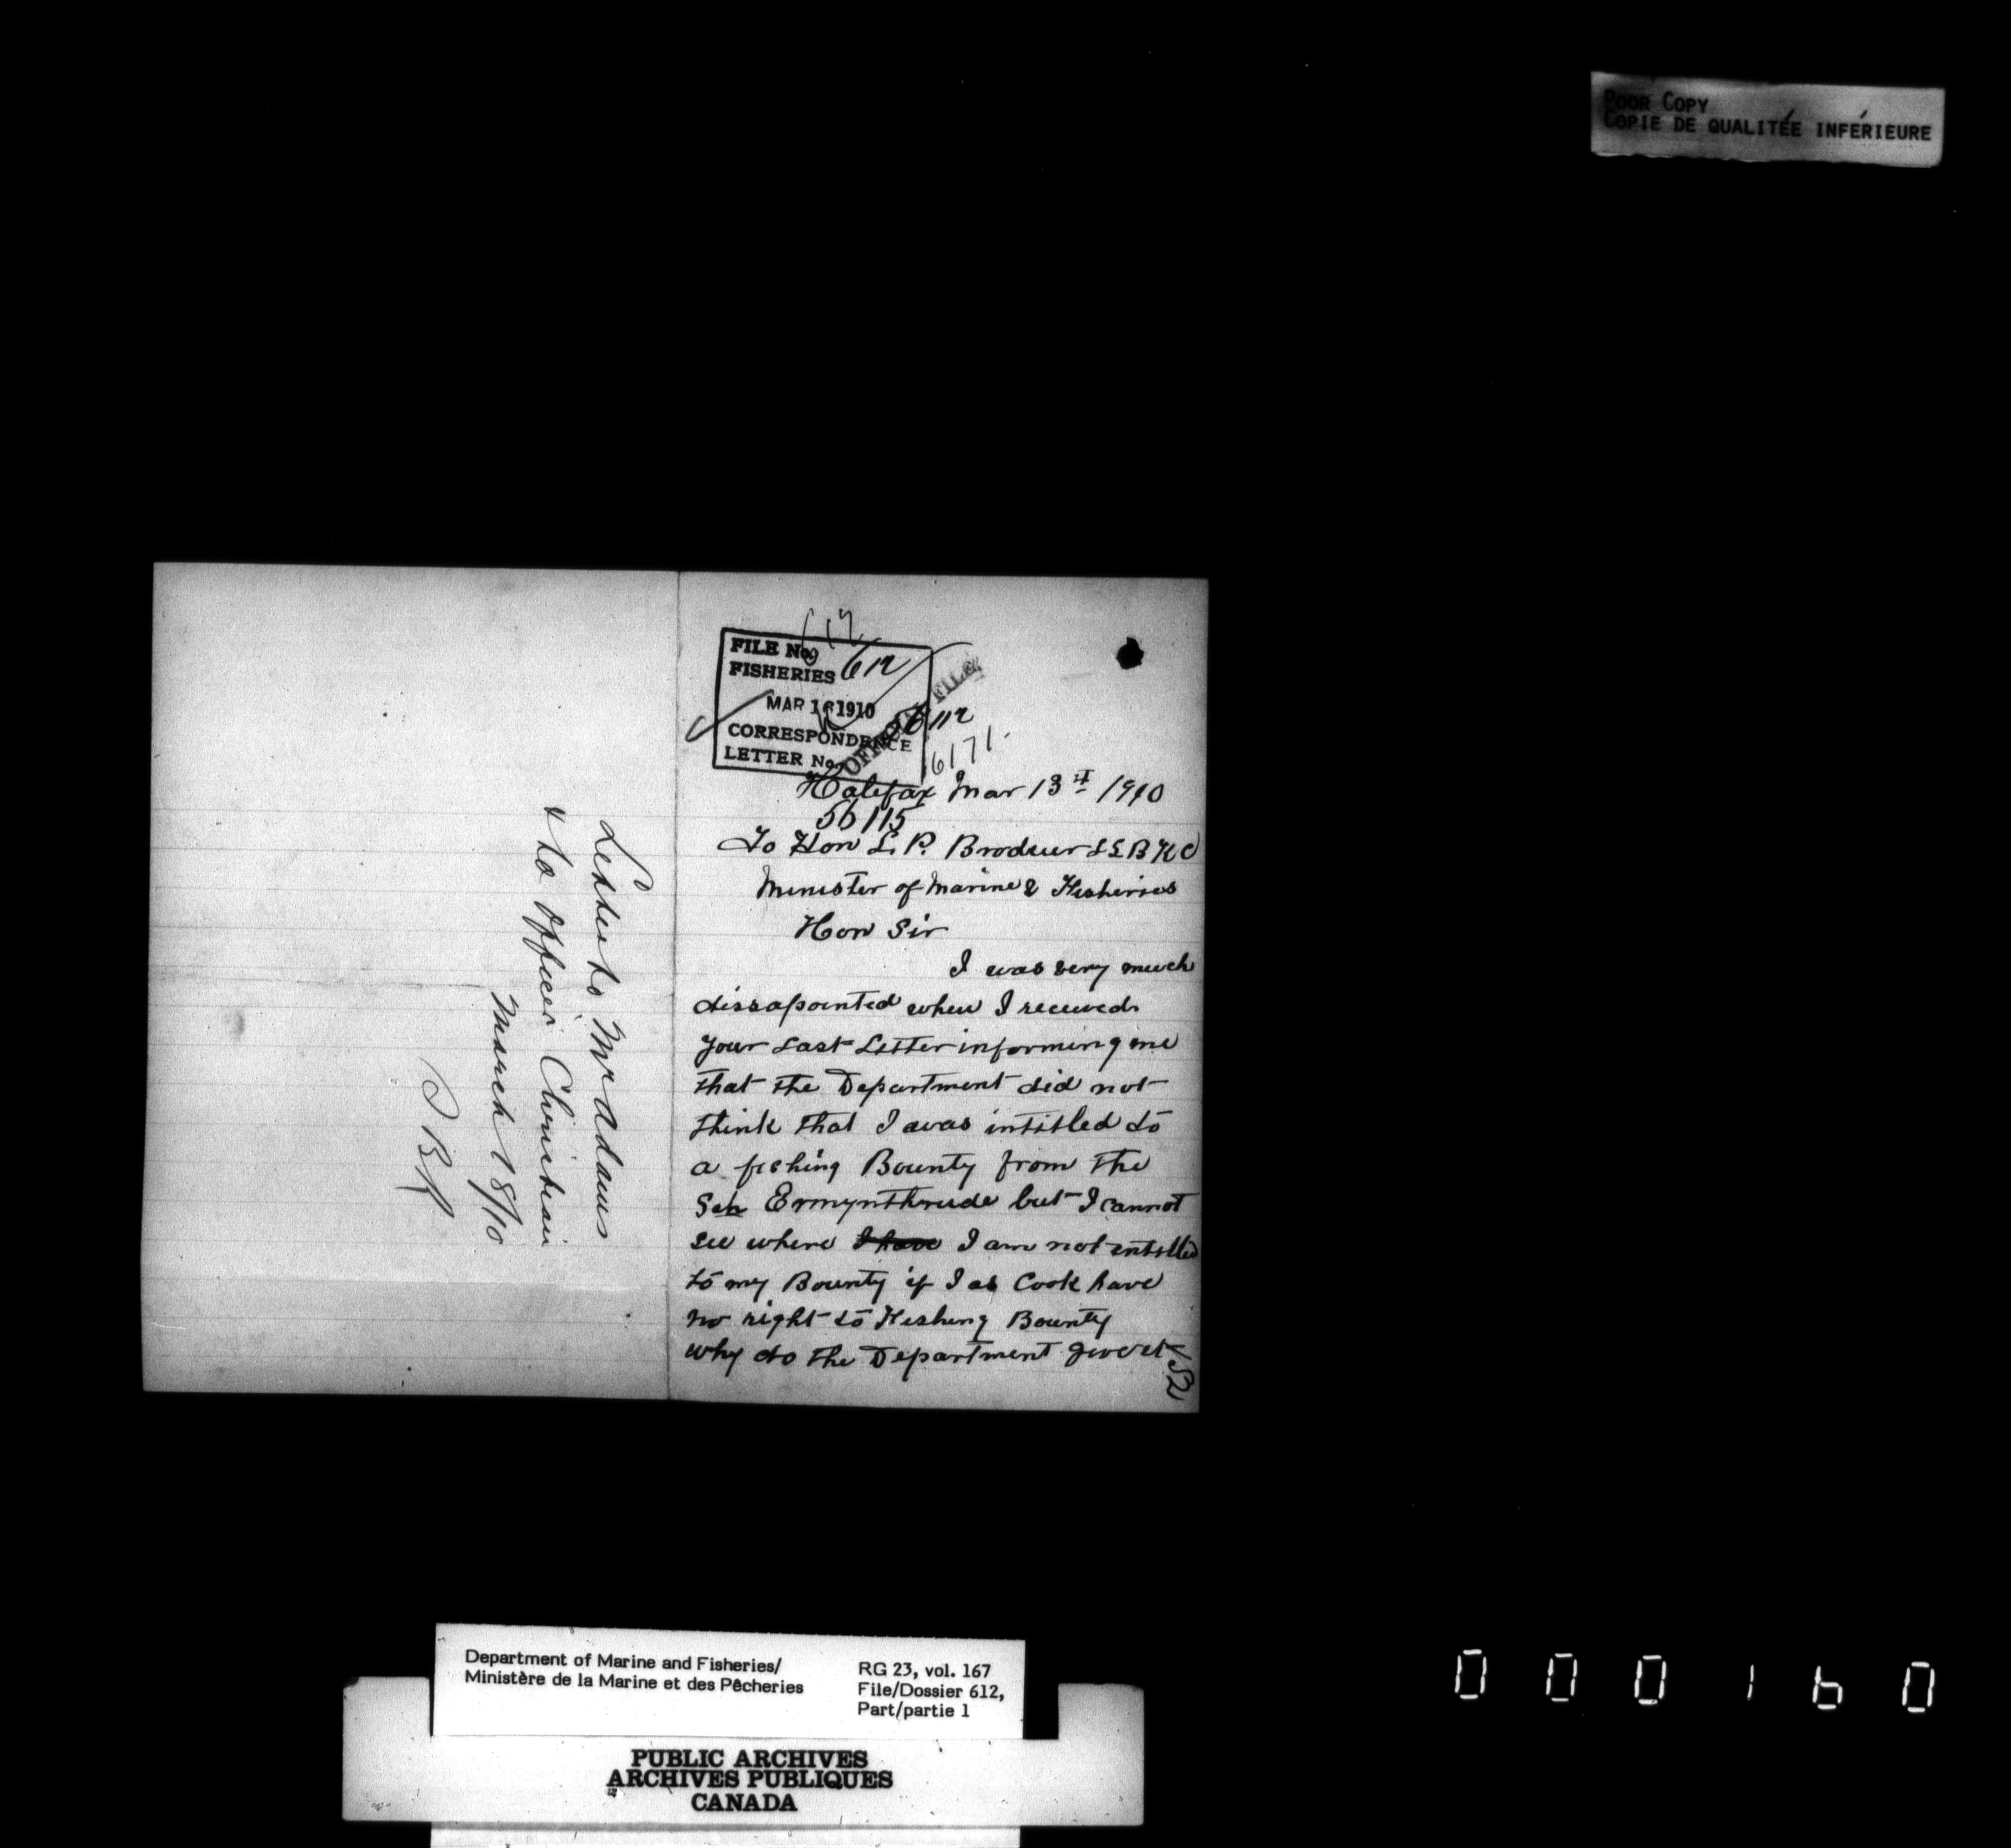 POOR COPY
COPIE DE QUALITÉE INFÉRIEURE
FILE No.
FISHERIES 612
MAR 16 1910
CORRESPONDENCE
LETTER No.
OFFICIAL FILE
56112
6171.
Halifax Mar 13th 1910
56115
To Hon L. P. Brodeur LLB KC
Minister of Marine & Fisheries
Hon Sir
I was very much
dissapointed when I received
your Last Letter informing me
that the Department did not
think that I was intitled to
a fishing Bounty from the
Sch Ermynthrude but I cannot
see where I have I am not entitled
to my Bounty if I as Cook have
no right to Fishing Bounty
why do the Department give it
152
Letter to Mr Adams
& to Officer Christian
March 18/10
Department of Marine and Fisheries/
Ministère de la Marine et des Pêcheries
RG 23, vol. 167
File/Dossier 612,
Part/partie 1
PUBLIC ARCHIVES
ARCHIVES PUBLIQUES
CANADA
000160